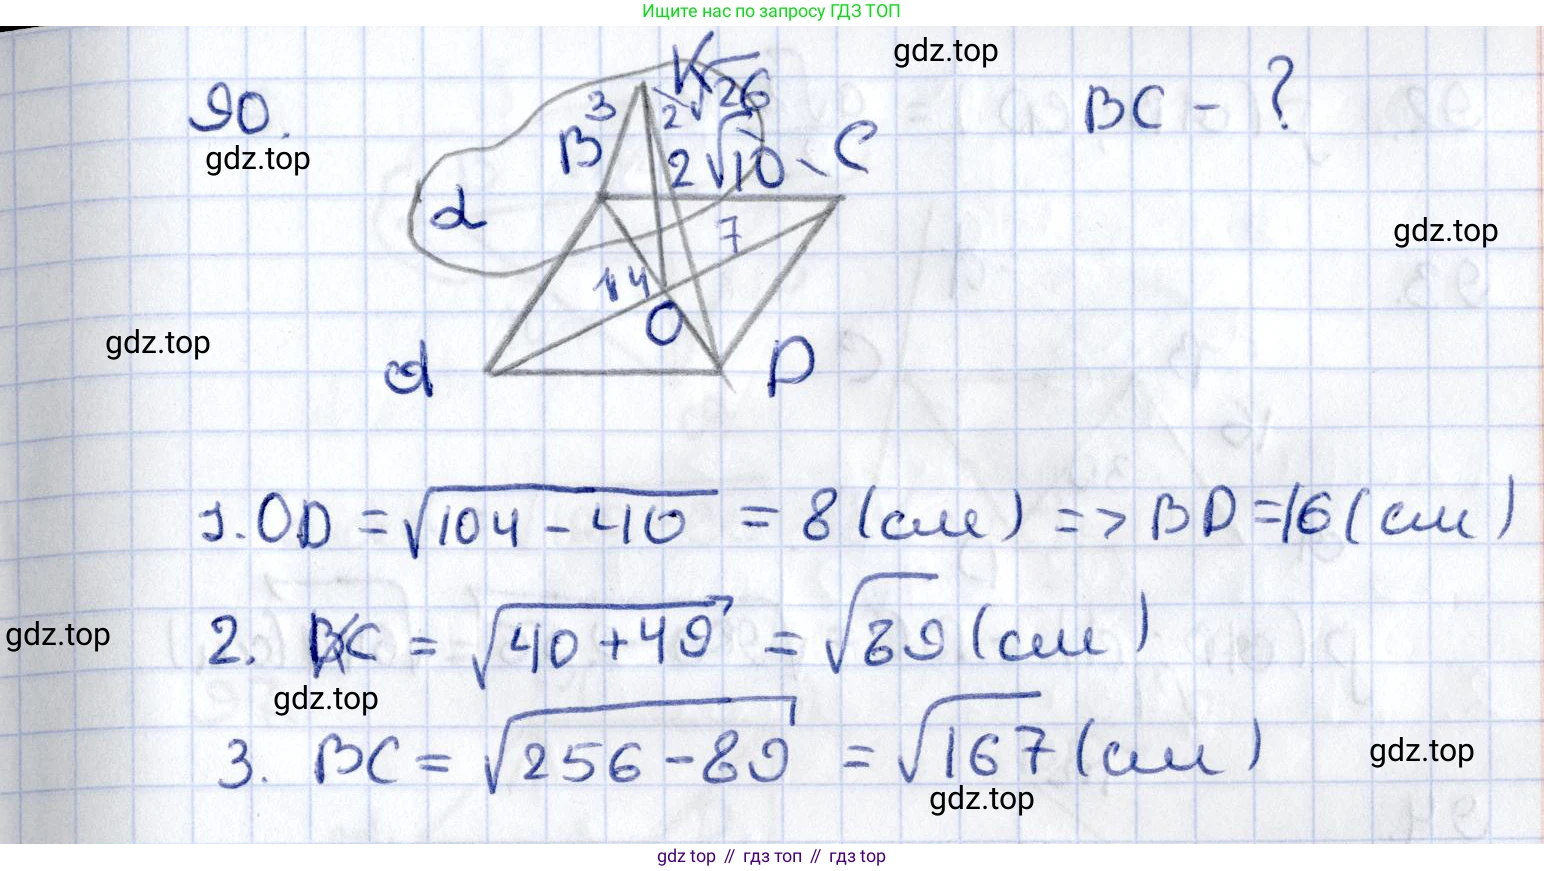 Ищите нас по запросу ГДЗ ТОП
gdz.top
90.
gdz.top
K
3
2√26
B
2√10
C
BC - ?
α
7
gdz.top
14
O
gdz.top
A
D
1. OD = √104 - 40 = 8 (см) => BD = 16 (см)
gdz.top
2. KC = √40 + 49 = √89 (см)
gdz.top
3. BC = √256 - 89 = √167 (см)
gdz.top
gdz.top
gdz top // гдз топ // gdz top